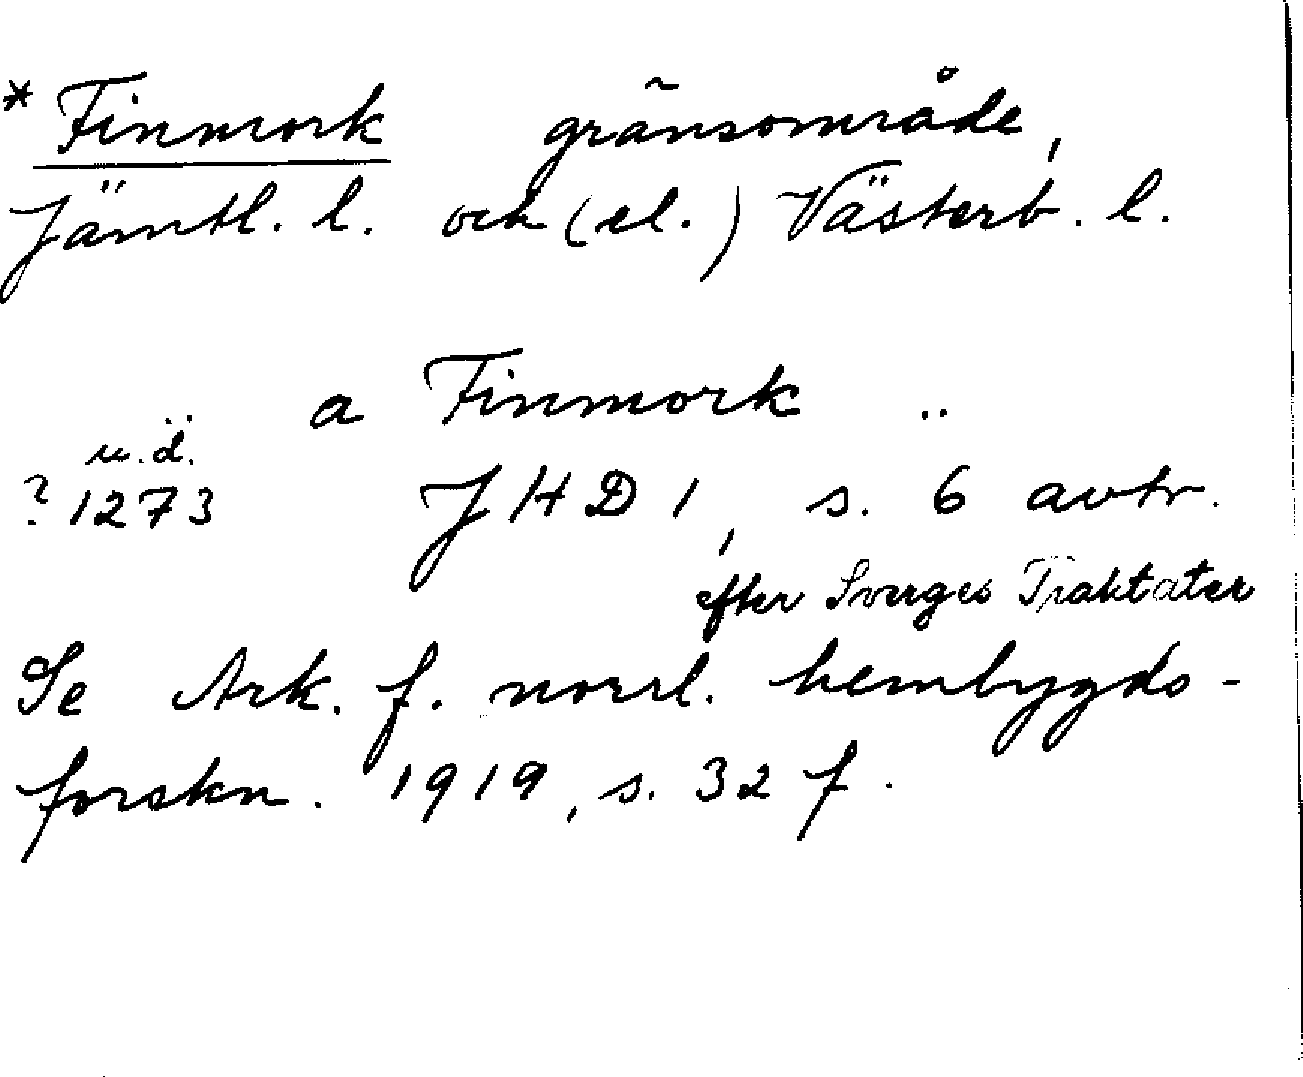 * Finmork gränsområde,
Jämtl. l. och (el.) Västerb. l.
.. a Finmork ..
u.d.
? 1273 JHD 1, s. 6 avtr.
efter Sverges Traktater
Se Ark. f. norrl. hembygds-
forskn. 1919, s. 32 f.